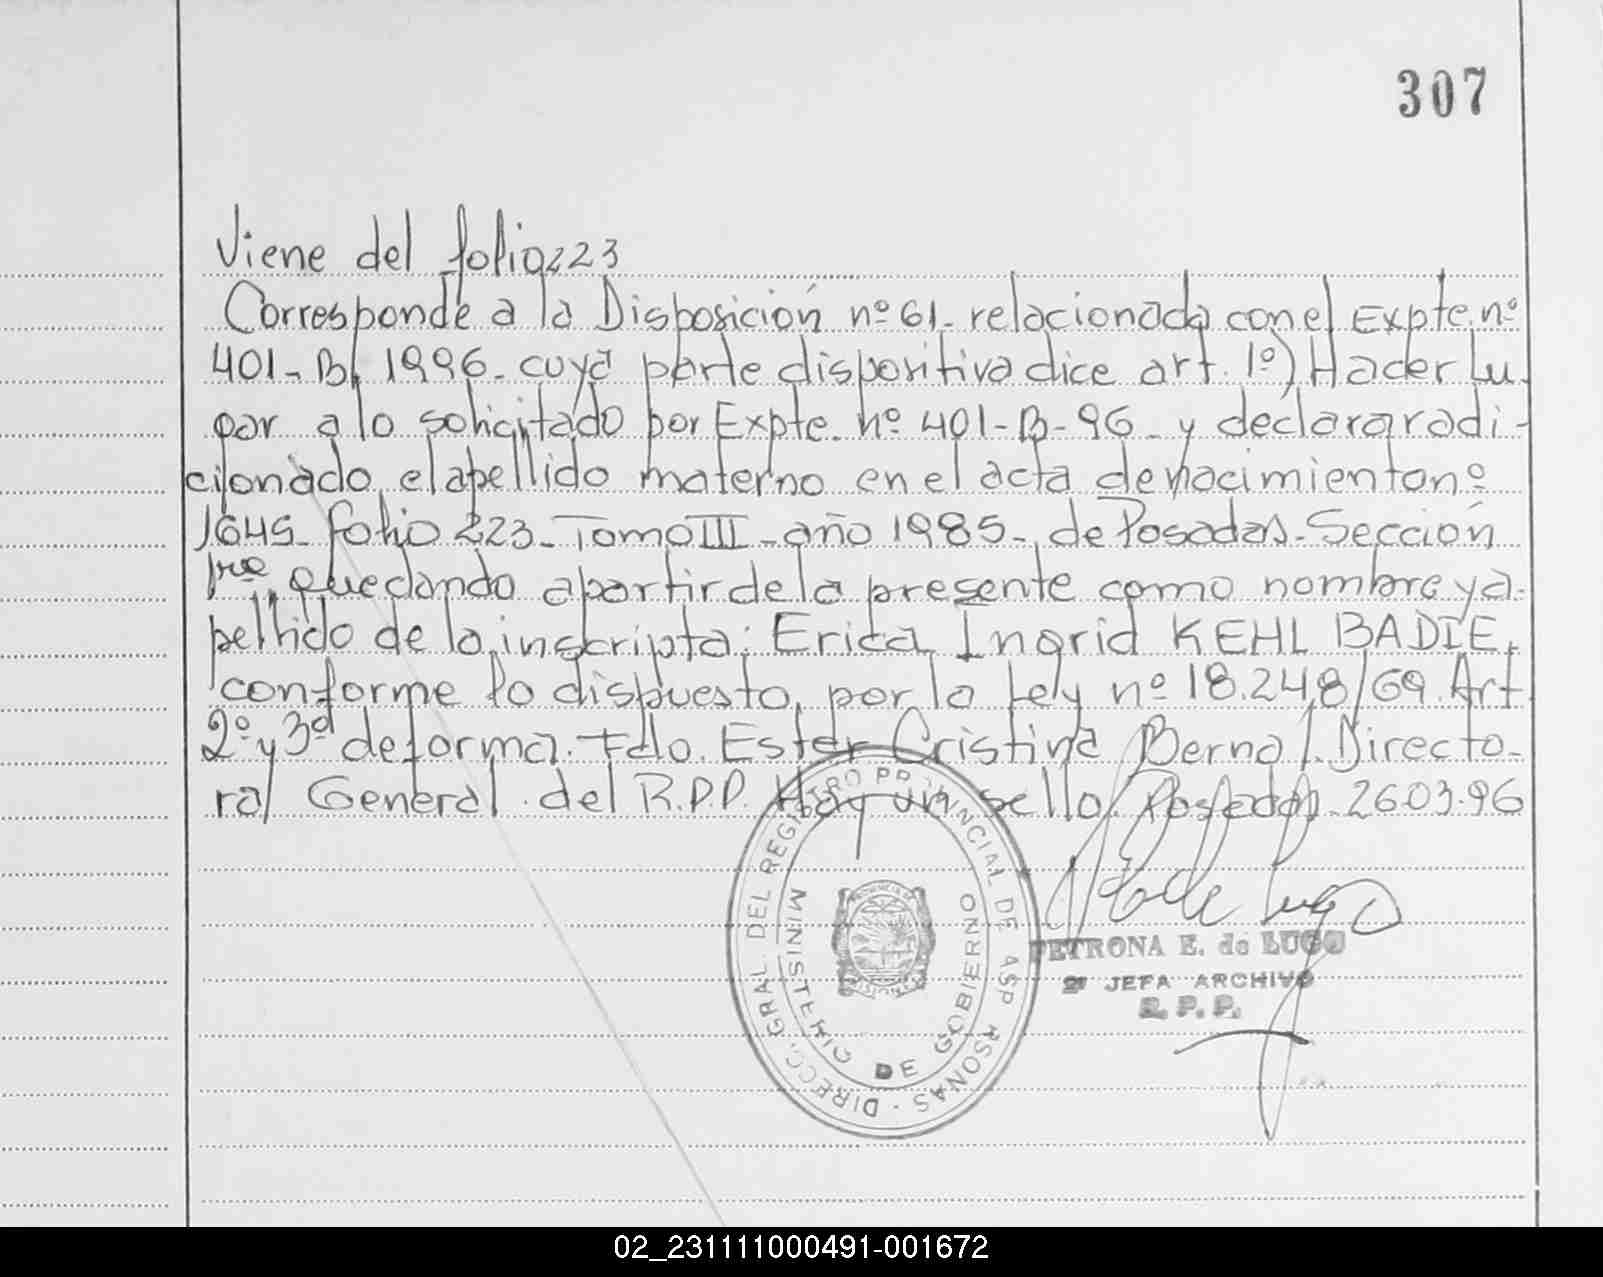 307
Viene del folio 223
Corresponde a la Disposición nº 61- relacionada con el Expte. nº
401-B- 1996- cuya parte dispositiva dice art. 1º) Hacer Lu-
gar a lo solicitado por Expte. nº 401-B-96- y declarar adi-
cionado el apellido materno en el acta de nacimiento nº
1645- folio 223- Tomo III- año 1985- de Posadas- Sección
1ra quedando a partir de la presente como nombre y a-
pellido de la inscripta: Erica Ingrid KEHL BADIE,
conforme lo dispuesto por la Ley nº 18.248/69. Art
2º y 3º de forma. Fdo. Ester Cristina Bernal. Directo-
ra General del R.P.P. Hay un sello. Posadas 26.03.96
DIRECC. GRAL. DEL REGISTRO PROVINCIAL DE
MINISTERIO DE GOBIERNO
PETRONA E. de LUGO
JEFA ARCHIVO
R. P. P.
02_231111000491-001672